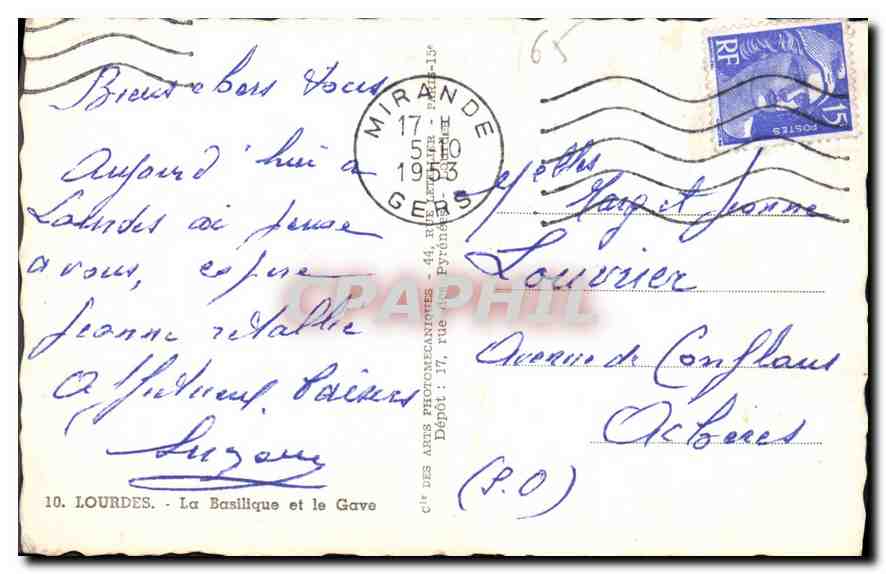 65
Bien chers tous
Aujourd'hui à
Lourdes ai pensé
a vous, espère
Jeanne rétablie
Affectueux baisers
Suzanne
10. LOURDES. - La Basilique et le Gave
Cie DES ARTS PHOTOMECANIQUES - 44, RUE LETELLIER - PARIS-15e
Dépôt : 17, rue des Pyrénées - Lourdes
MIRANDE
17 H
5-10
1953
GERS
RF
POSTES
15F
Melles
Marg et Jeanne
Louvrier
Avenue de Conflans
Achères
(S.O)
CPAPHIL